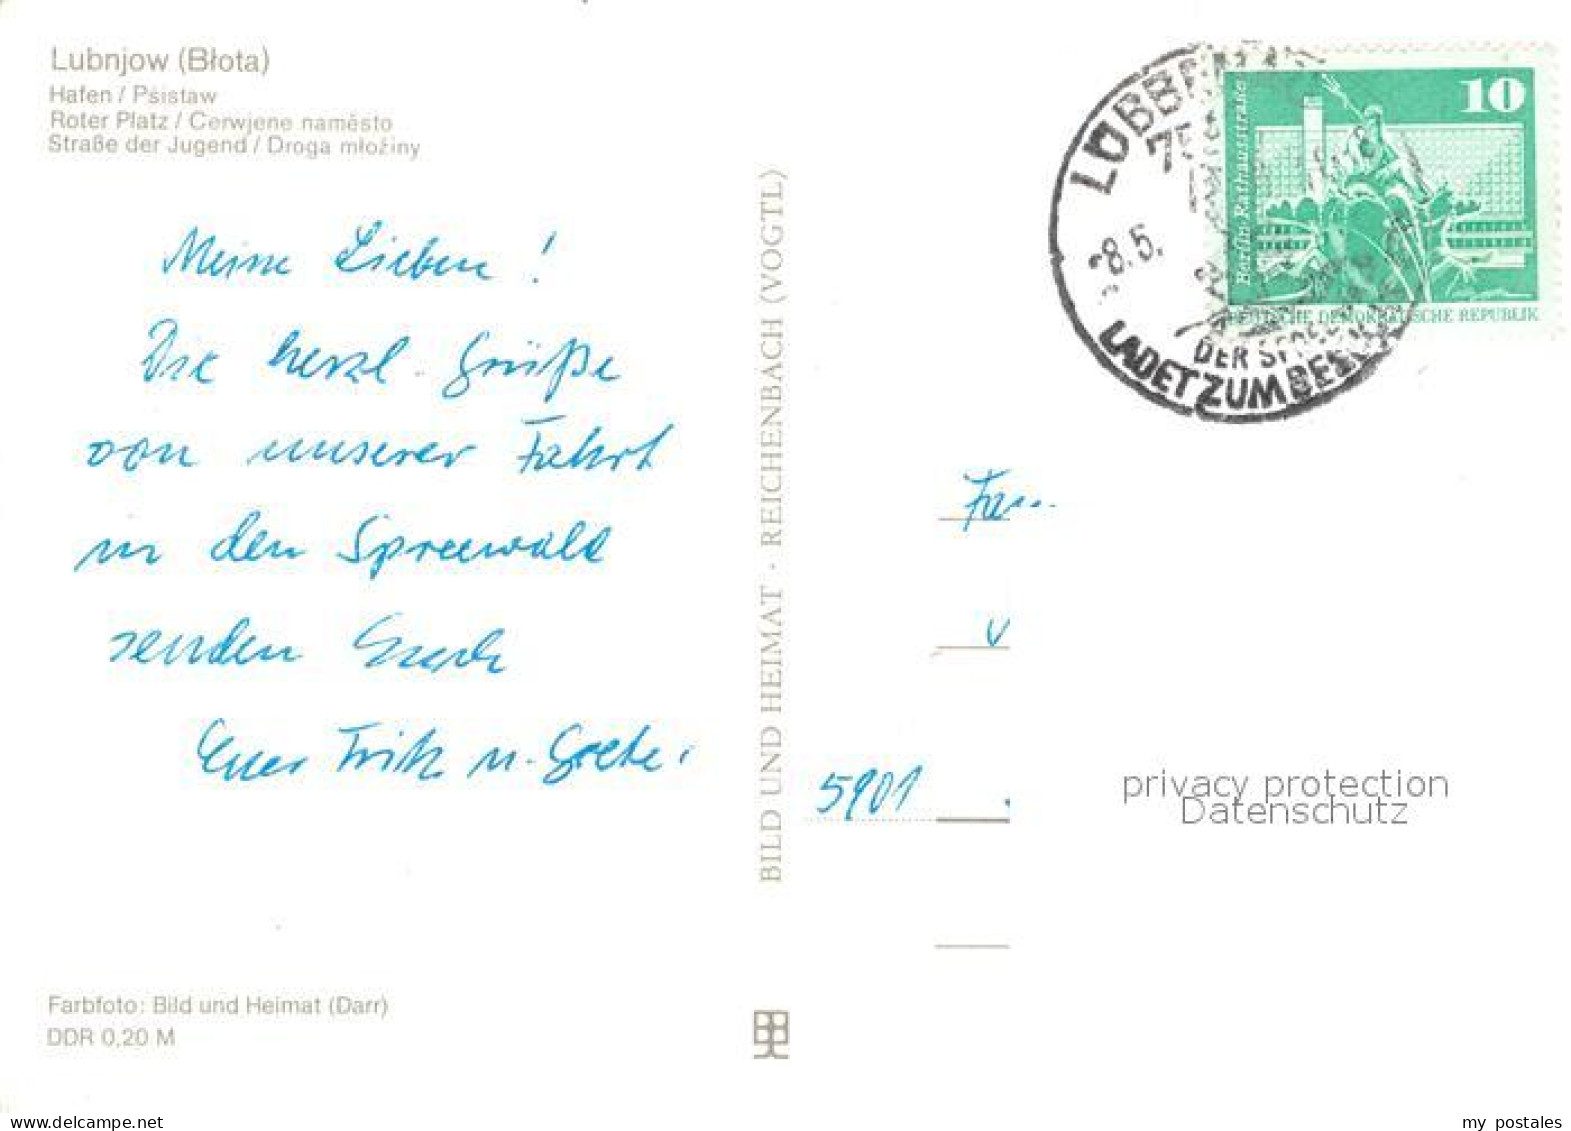 Lubnjow (Błota)
Hafen / Pśistaw
Roter Platz / Cerwjene naměsto
Straße der Jugend / Droga młożiny
Meine Lieben!
Die herzl. Grüße
von unserer Fahrt
in den Spreewald
senden Euch
Euer Fritz u. Grete.
Farbfoto: Bild und Heimat (Darr)
DDR 0,20 M
BILD UND HEIMAT · REICHENBACH (VOGTL)
10
Berlin Rathausstraße
DEUTSCHE DEMOKRATISCHE REPUBLIK
8.5.
LADET ZUM
DER
Fam.
5901
privacy protection
Datenschutz
my postales